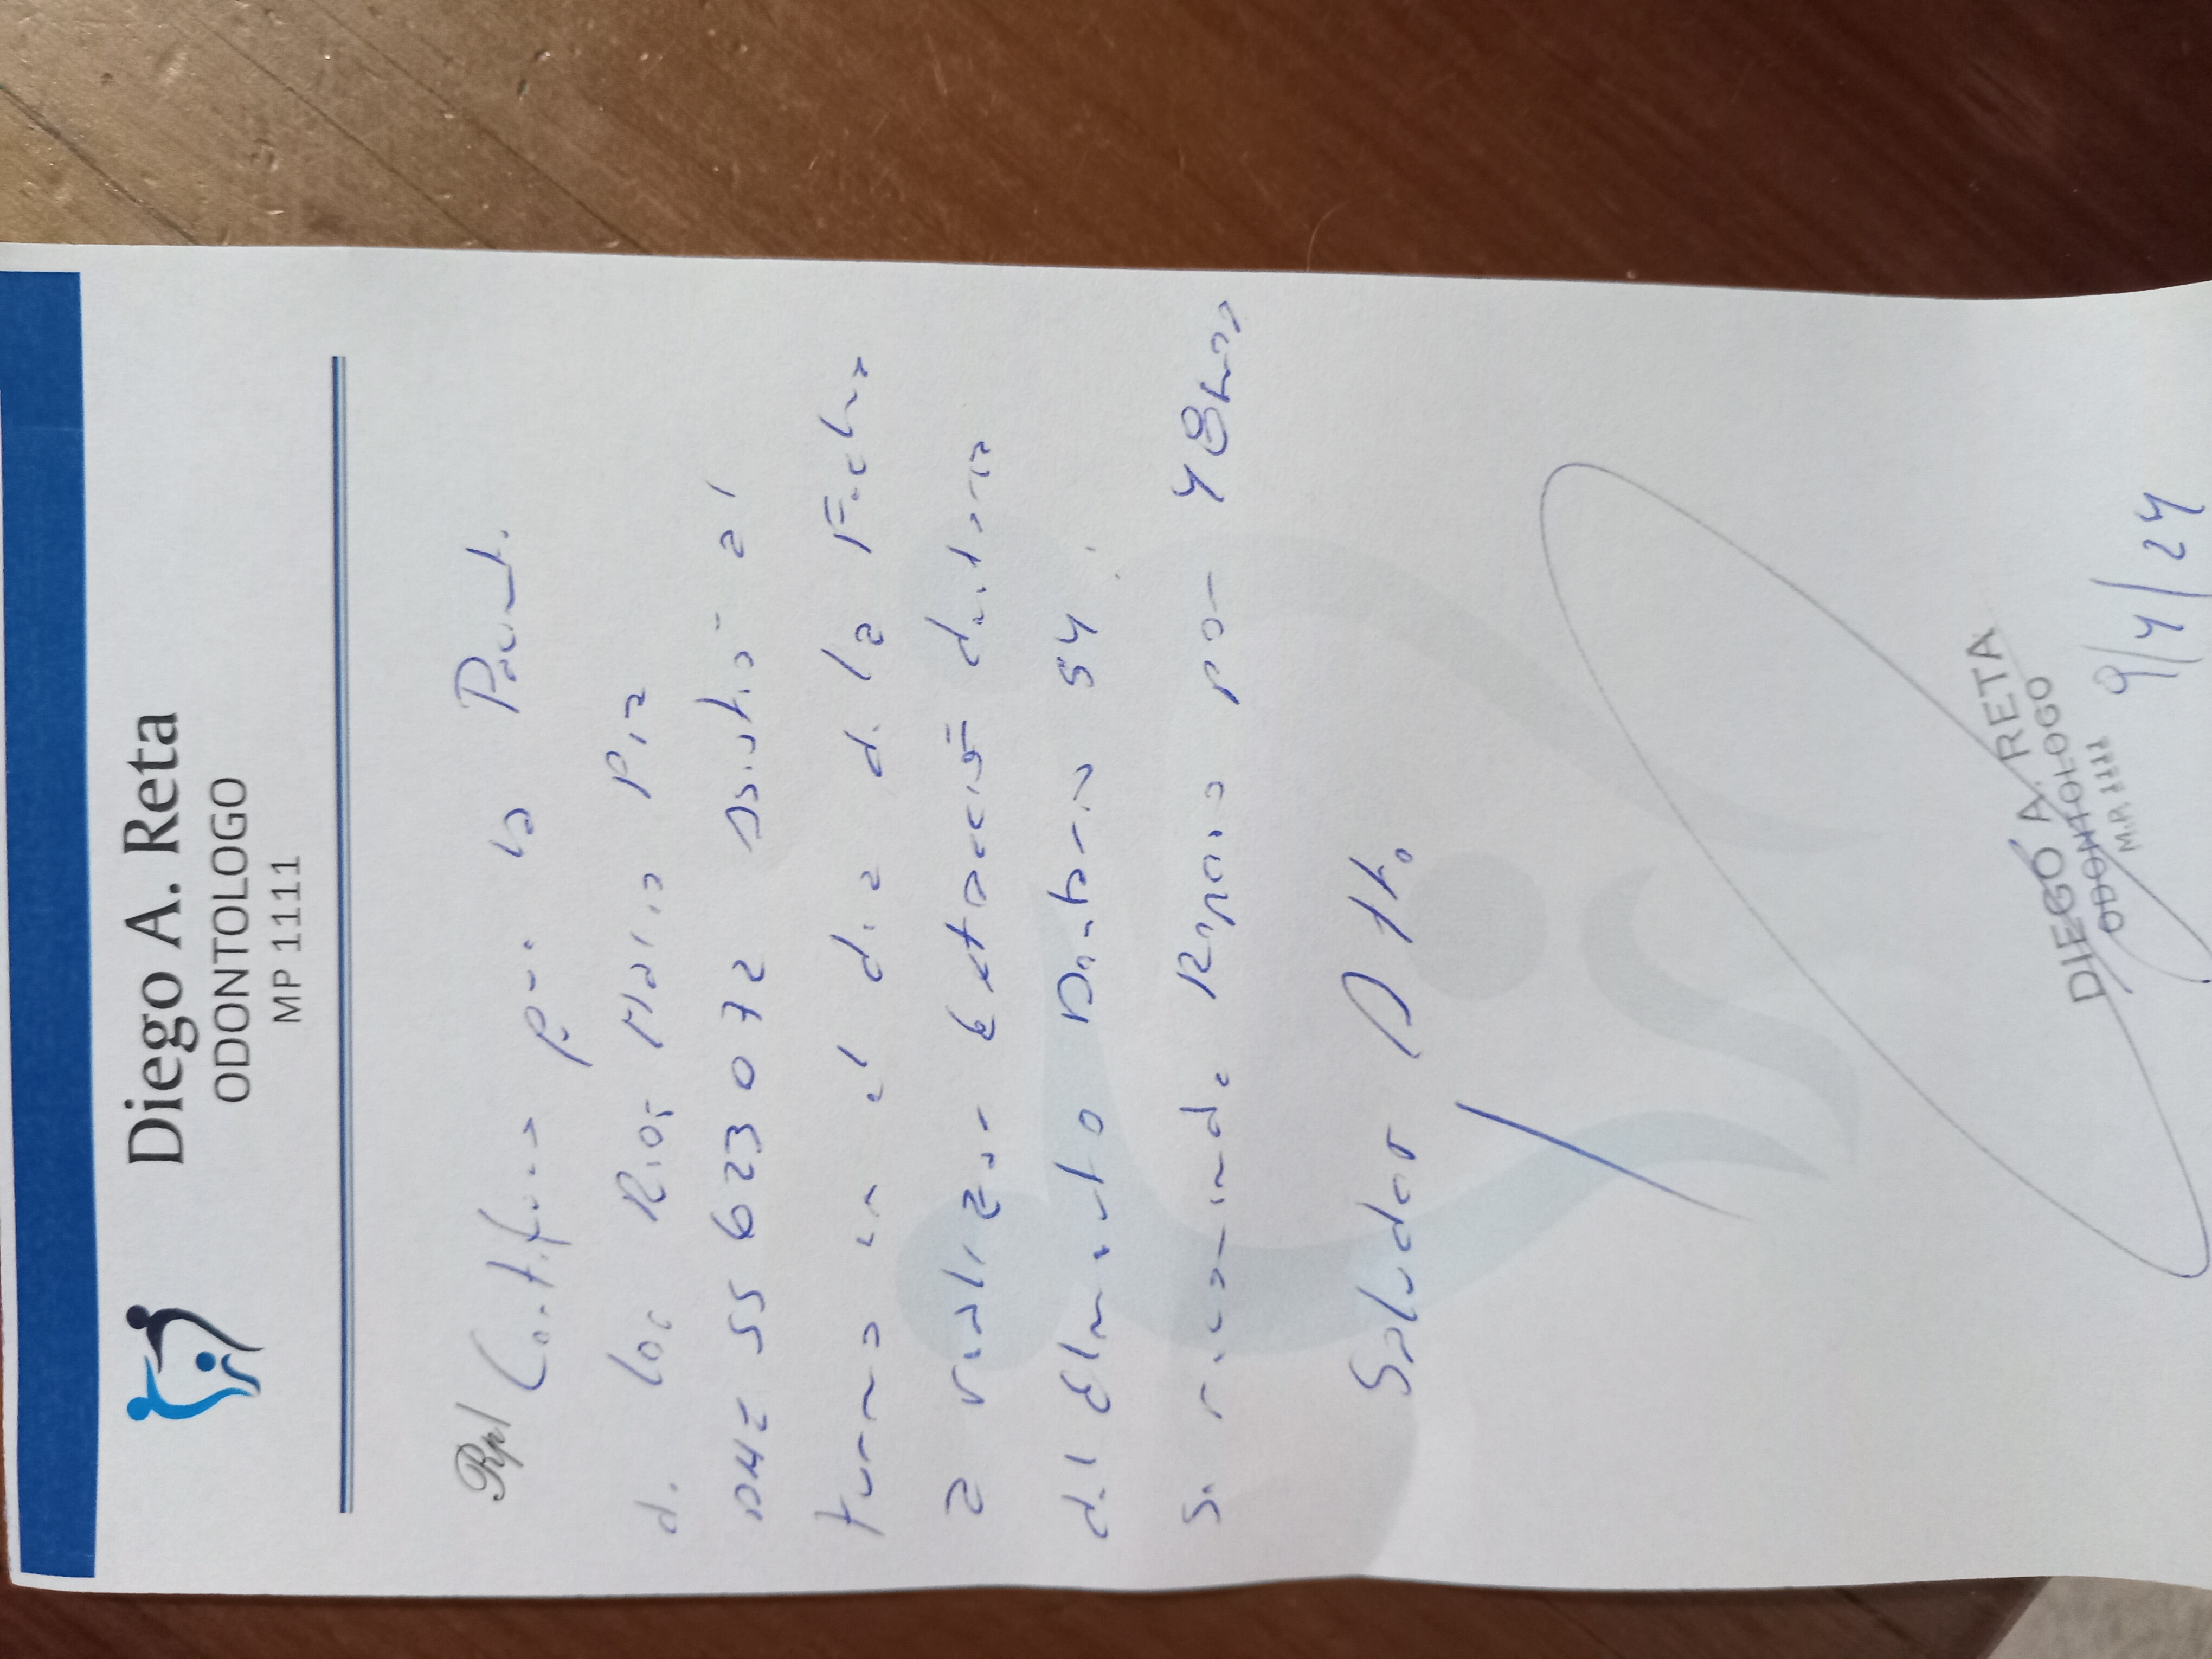 Diego A. Reta
ODONTOLOGO
MP 1111
Rp/ Certifico que la Paciente
de los Rios Maria Pia
DNI= 55623072 Asistio al
turno en el dia de la Fecha
a realizar Extracción dentaria
del Elemento Dentario 54.
Se recomienda Reposo por 48hrs
Saludos Atte.
DIEGO A. RETA
ODONTOLOGO
M.P. 1111
9/4/24